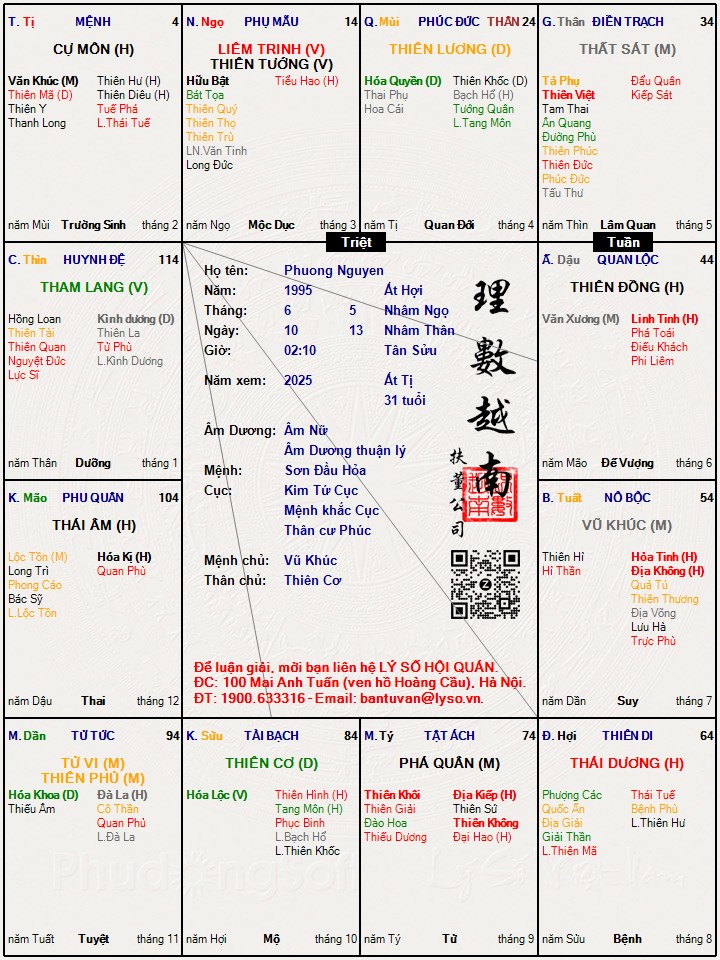 T. Tị MỆNH 4
CỰ MÔN (H)
Văn Khúc (M) Thiên Hư (H)
Thiên Mã (D) Thiên Diêu (H)
Thiên Y Tuế Phá
Thanh Long L.Thái Tuế
năm Mùi Trường Sinh tháng 2
N. Ngọ PHỤ MẪU 14
LIÊM TRINH (V)
THIÊN TƯỚNG (V)
Hữu Bật Tiểu Hao (H)
Bát Tọa
Thiên Quý
Thiên Thọ
Thiên Trù
LN.Văn Tinh
Long Đức
năm Ngọ Mộc Dục tháng 3
Q. Mùi PHÚC ĐỨC THÂN 24
THIÊN LƯƠNG (D)
Hóa Quyền (D) Thiên Khốc (D)
Thai Phụ Bạch Hổ (H)
Hoa Cái Tướng Quân
L.Tang Môn
năm Tị Quan Đới tháng 4
G. Thân ĐIỀN TRẠCH 34
THẤT SÁT (M)
Tả Phụ Đẩu Quân
Thiên Việt Kiếp Sát
Tam Thai
Ân Quang
Đường Phù
Thiên Phúc
Thiên Đức
Phúc Đức
Tấu Thư
năm Thìn Lâm Quan tháng 5
Triệt
Tuần
C. Thìn HUYNH ĐỆ 114
THAM LANG (V)
Hồng Loan Kình dương (D)
Thiên Tài Thiên La
Thiên Quan Tử Phù
Nguyệt Đức L.Kình Dương
Lực Sĩ
năm Thân Dưỡng tháng 1
Họ tên: Phuong Nguyen
Năm: 1995 Ất Hợi
Tháng: 6 5 Nhâm Ngọ
Ngày: 10 13 Nhâm Thân
Giờ: 02:10 Tân Sửu
Năm xem: 2025 Ất Tị
31 tuổi
Âm Dương: Âm Nữ
Âm Dương thuận lý
Mệnh: Sơn Đầu Hỏa
Cục: Kim Tứ Cục
Mệnh khắc Cục
Thân cư Phúc
Mệnh chủ: Vũ Khúc
Thân chủ: Thiên Cơ
理數越南
扶董公司
Để luận giải, mời bạn liên hệ LÝ SỐ HỘI QUÁN.
ĐC: 100 Mai Anh Tuấn (ven hồ Hoàng Cầu), Hà Nội.
ĐT: 1900.633316 - Email: bantuvan@lyso.vn.
Ấ. Dậu QUAN LỘC 44
THIÊN ĐỒNG (H)
Văn Xương (M) Linh Tinh (H)
Phá Toái
Điếu Khách
Phi Liêm
năm Mão Đế Vượng tháng 6
K. Mão PHU QUÂN 104
THÁI ÂM (H)
Lộc Tồn (M) Hóa Kị (H)
Long Trì Quan Phù
Phong Cáo
Bác Sỹ
L.Lộc Tồn
năm Dậu Thai tháng 12
B. Tuất NÔ BỘC 54
VŨ KHÚC (M)
Thiên Hỉ Hỏa Tinh (H)
Hỉ Thần Địa Không (H)
Quả Tú
Thiên Thương
Địa Võng
Lưu Hà
Trực Phù
năm Dần Suy tháng 7
M. Dần TỬ TỨC 94
TỬ VI (M)
THIÊN PHỦ (M)
Hóa Khoa (D) Đà La (H)
Thiếu Âm Cô Thần
Quan Phủ
L.Đà La
năm Tuất Tuyệt tháng 11
K. Sửu TÀI BẠCH 84
THIÊN CƠ (D)
Hóa Lộc (V) Thiên Hình (H)
Tang Môn (H)
Phục Binh
L.Bạch Hổ
L.Thiên Khốc
năm Hợi Mộ tháng 10
M. Tý TẬT ÁCH 74
PHÁ QUÂN (M)
Thiên Khôi Địa Kiếp (H)
Thiên Giải Thiên Sứ
Đào Hoa Thiên Không
Thiếu Dương Đại Hao (H)
năm Tý Tử tháng 9
Đ. Hợi THIÊN DI 64
THÁI DƯƠNG (H)
Phượng Các Thái Tuế
Quốc Ấn Bệnh Phù
Địa Giải L.Thiên Hư
Giải Thần
L.Thiên Mã
năm Sửu Bệnh tháng 8